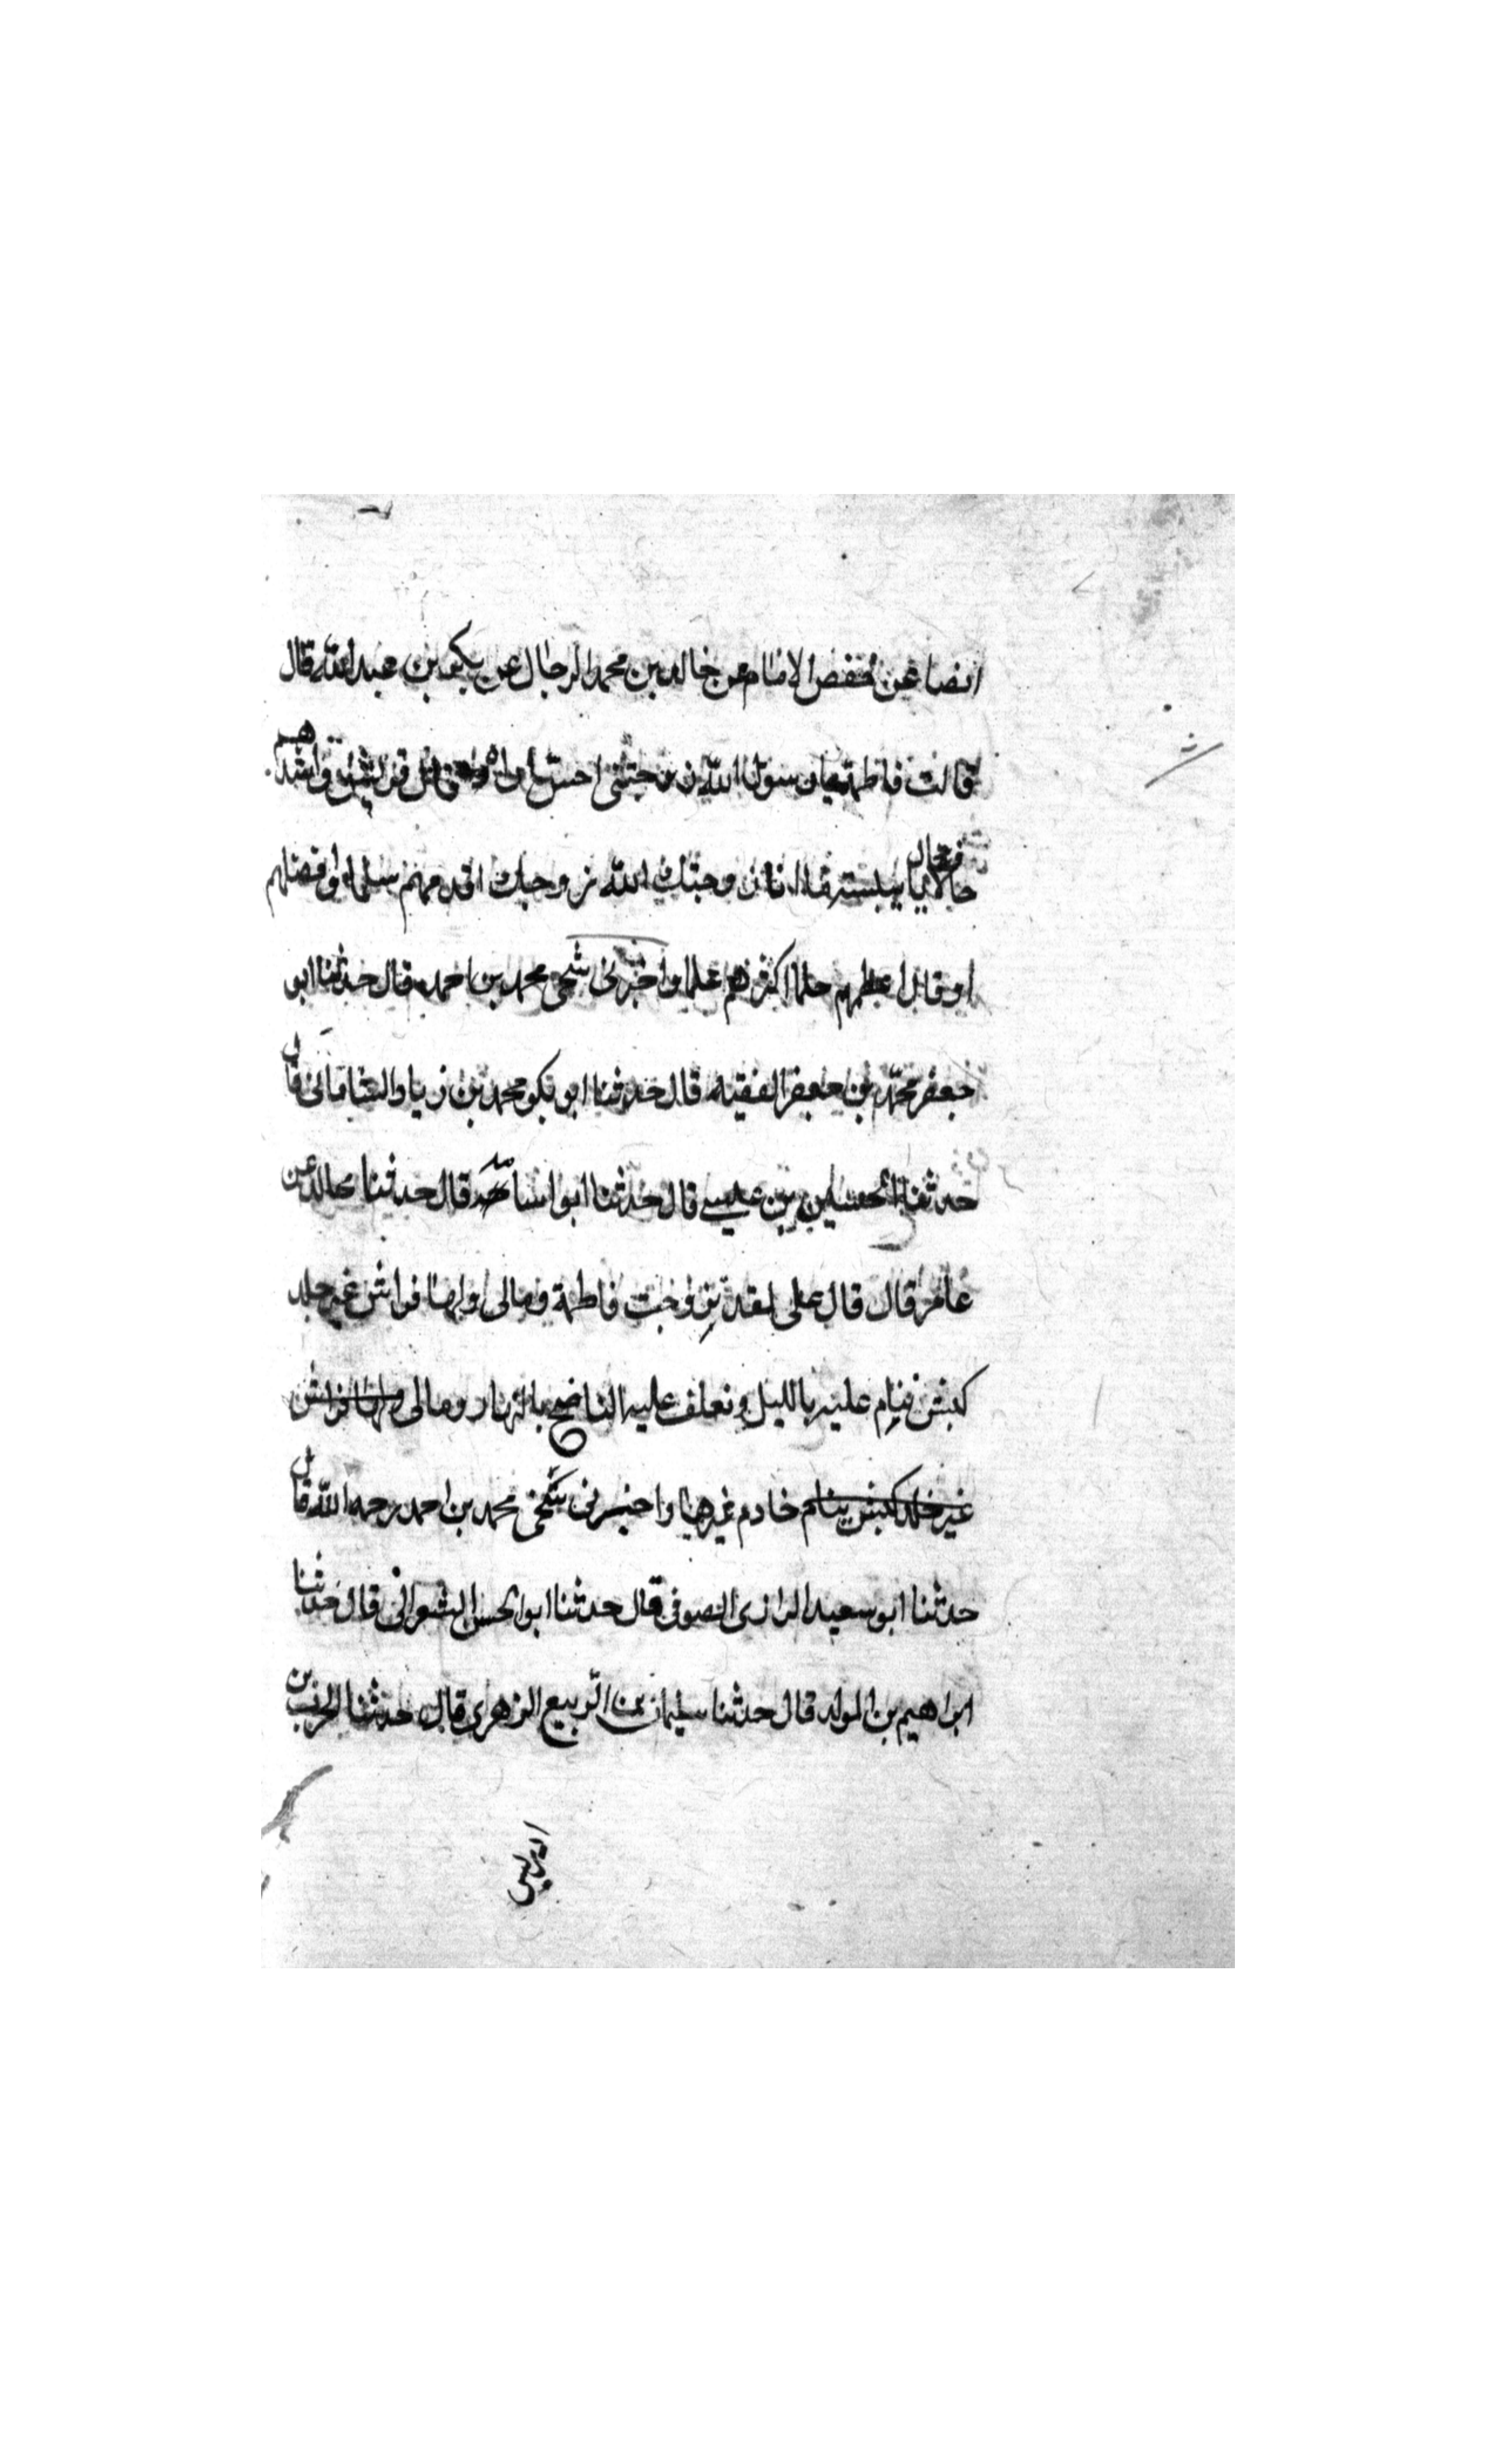 ايضا عن حفص الامام عن خالد بن محمد الرجال عن بكير بن عبد الله قال
قالت فاطمة يا رسول الله زوجتني احسن قريش واشدهم
حالا فقال يا بنية انا زوجتك الله زوجك اقدمهم سلما وافضلهم
او قال اعظمهم حلما اكثرهم علما واخبرني شيخي محمد بن احمد قال حدثنا ابو
جعفر محمد بن جعفر الفقيه قال حدثنا ابو بكر محمد بن زياد الشاماتي قال
حدثنا الحسين بن عيسى قال حدثنا ابو اسامة قال حدثنا مجالد عن
عامر قال قال علي لقد تزوجت فاطمة ومالي ولها فراش غير جلد
كبش ننام عليه بالليل ونعلف عليه الناضح بالنهار ومالي ولها فراش
غير جلد كبش ينام خادم غيرها واخبرني شيخي محمد بن احمد رحمه الله قال
حدثنا ابو سعيد الرازي الصوفي قال حدثنا ابو الحسن الشعراني قال حدثنا
ابراهيم بن المولد قال حدثنا سليمان بن الربيع الزهري قال حدثنا الحرث بن
ادريس